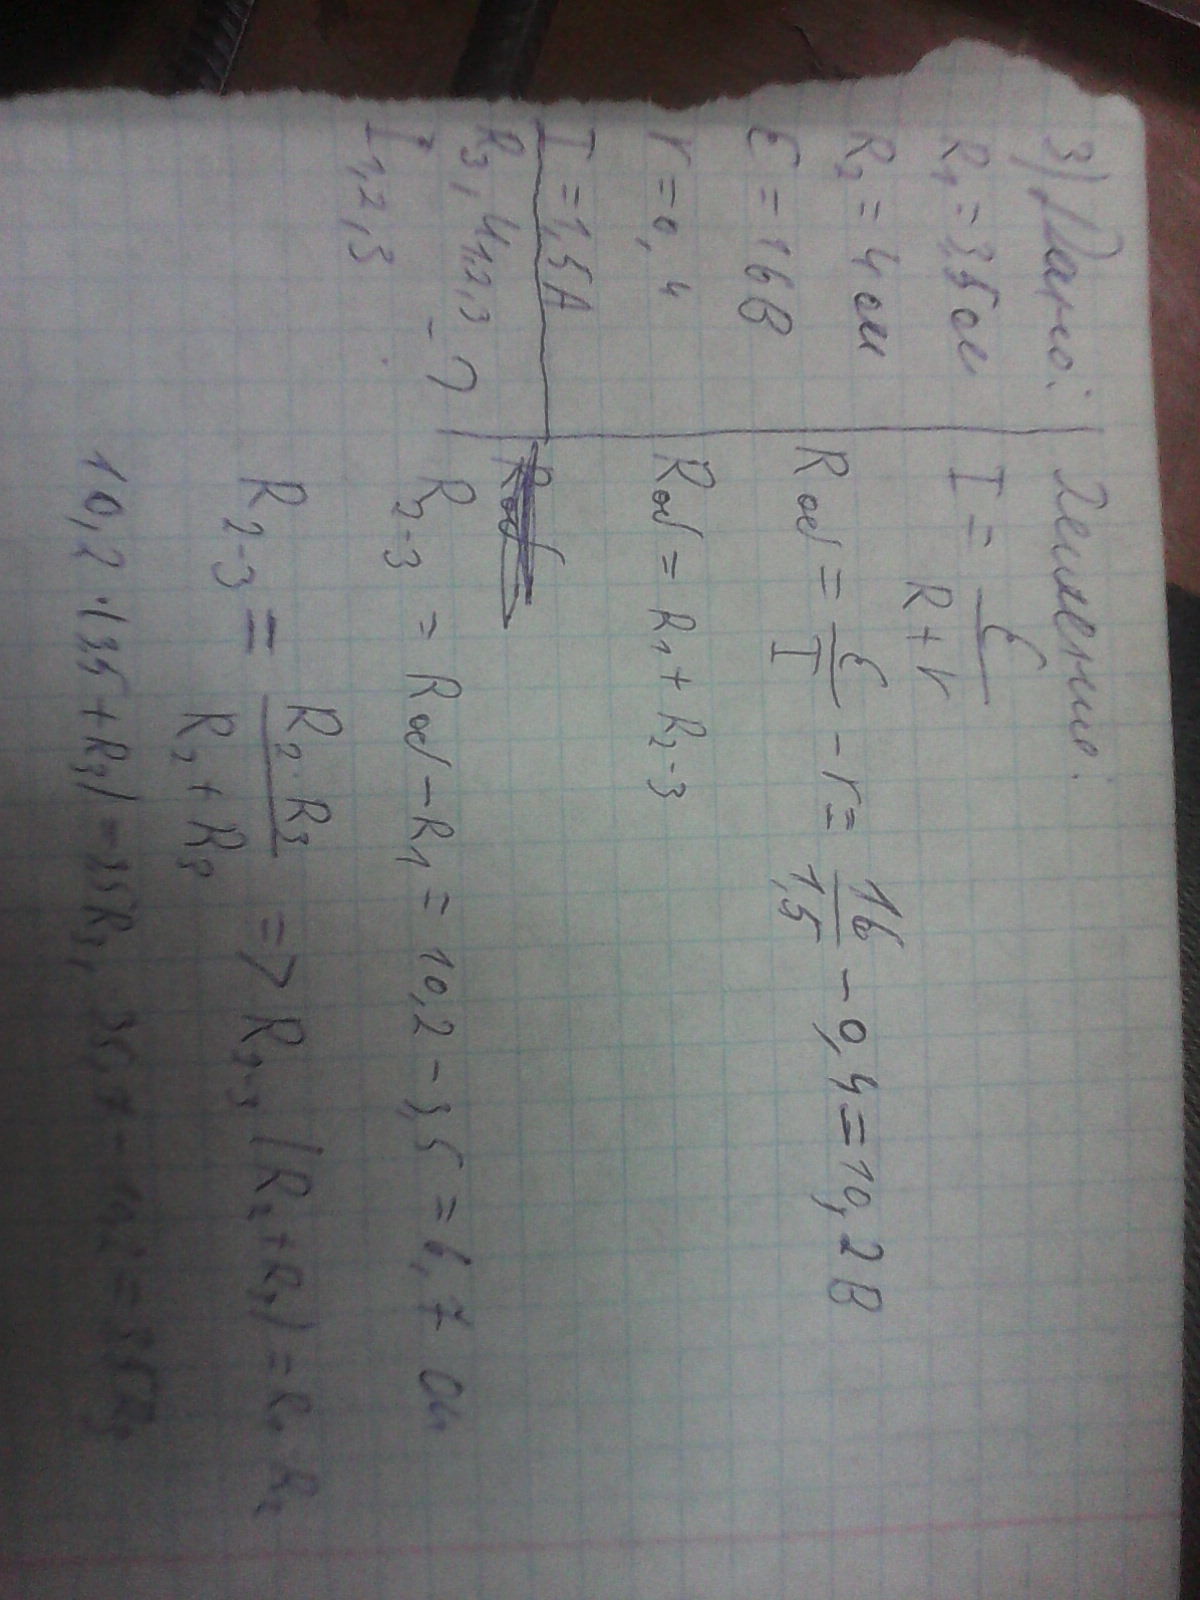 3) Дано:
R₁ = 3,5 Ом
R₂ = 4 Ом
ε = 16 В
r = 0,4
I = 1,5 А
R₃, U₁,₂,₃
I₁,₂,₃ - ?
Решение:
I = ε / (R + r)
Rоб = ε / I − r = 16 / 1,5 − 0,4 = 10,2 В
Rоб = R₁ + R₂₋₃
R₂₋₃ = Rоб − R₁ = 10,2 − 3,5 = 6,7 Ом
R₂₋₃ = R₂·R₃ / (R₂ + R₃) => R₂₋₃ (R₂ + R₃) =
10,2 · (35 + R₃) = 35R₃, 35,7